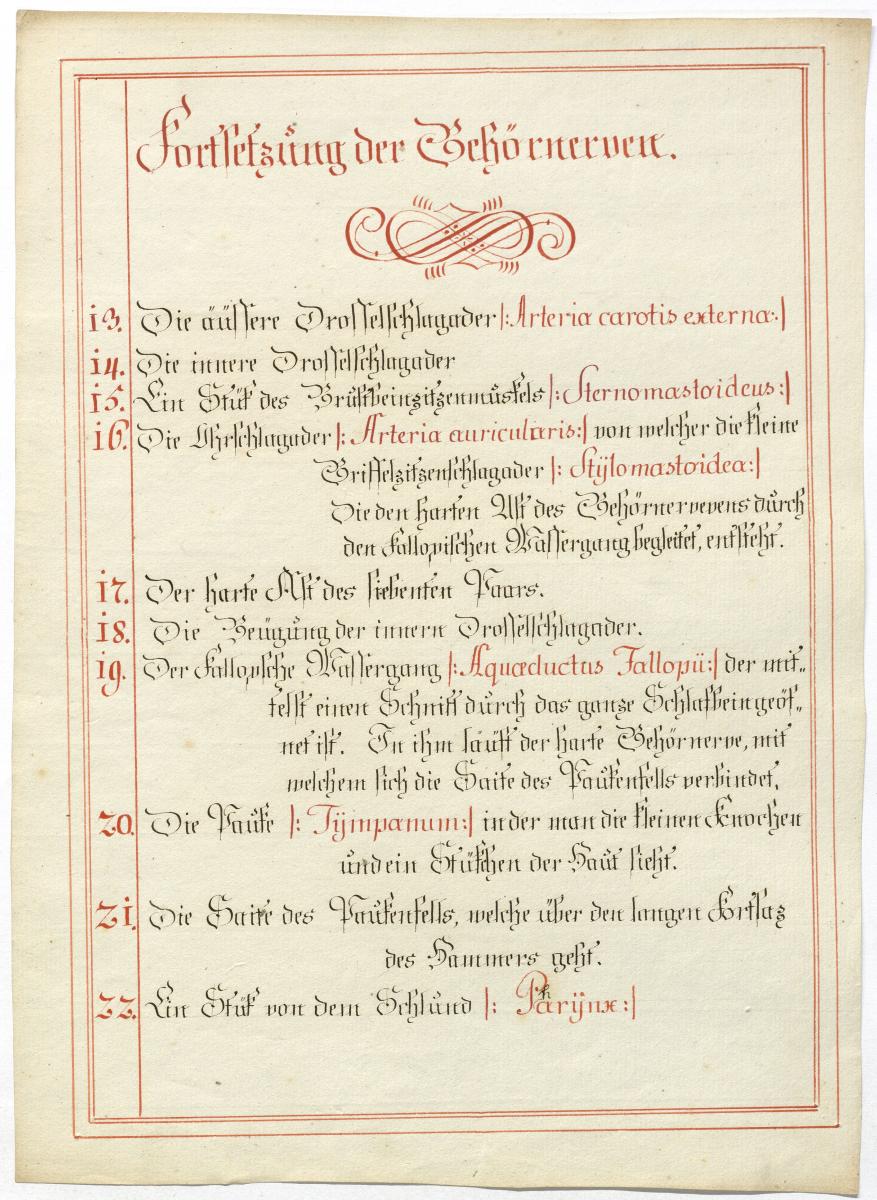 Fortsetzung der Gehörnerven.
13. Die äüssere Drosselschlagader |: Arteria carotis externa :|
14. Die innere Drosselschlagader
15. Ein Stük des Brustbeinzitzenmuskels |: Sternomastoideus :|
16. Die Uhrschlagader |: Arteria auricularis :| von welcher die kleine
Griffelzitzenschlagader |: Stÿlomastoidea :|
Die den harten Ast des Gehörnervevens durch
den Fallopischen Wassergang begleitet, entsteht.
17. Der harte Ast des siebenten Paars.
18. Die Beügung der innern Drosselschlagader.
19. Der Fallopsche Wassergang |: Aquæductus Fallopii :| der mit-
telst einen Schnitt durch das ganze Schlafbein geöf-
net ist. In ihm läuft der harte Gehörnerve, mit
welchem sich die Saite des Paukenfells verbindet.
20. Die Pauke |: Tÿmpanum :| in der man die kleinen Knochen
und ein Stükchen der Haut sieht.
21. Die Saite des Paukenfells, welche über den langen Fortsaz
des Hammers geht.
22. Ein Stük von dem Schlund |: Pharÿnx :|